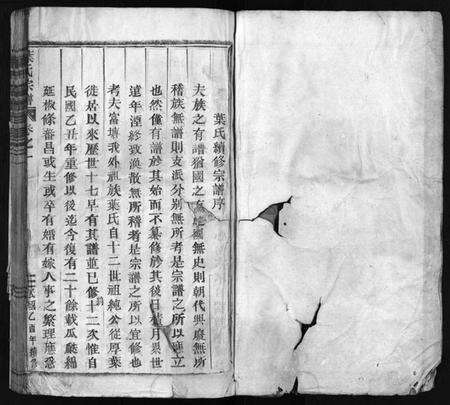 葉氏續修宗譜序
夫族之有譜猶國之有史國無史則朝代興廢無所
稽族無譜則支派分別無所考是宗譜之所以應立
也然僅有譜於其始而不纂修於其後日積月累世
遠年湮終致渙散無所稽者是宗譜之所以宜修也
考夫富塘我外祖族葉氏自十二世祖純公從厚葉
徙居以來歷世十七早有其譜並已修十二次惟自
民國乙丑年重修以後迄今復有二十餘載瓜瓞綿
延椒條蕃昌或生或卒有婚有嫁人事之繁理應悉
葉氏宗譜 卷之一
民國乙酉年續修